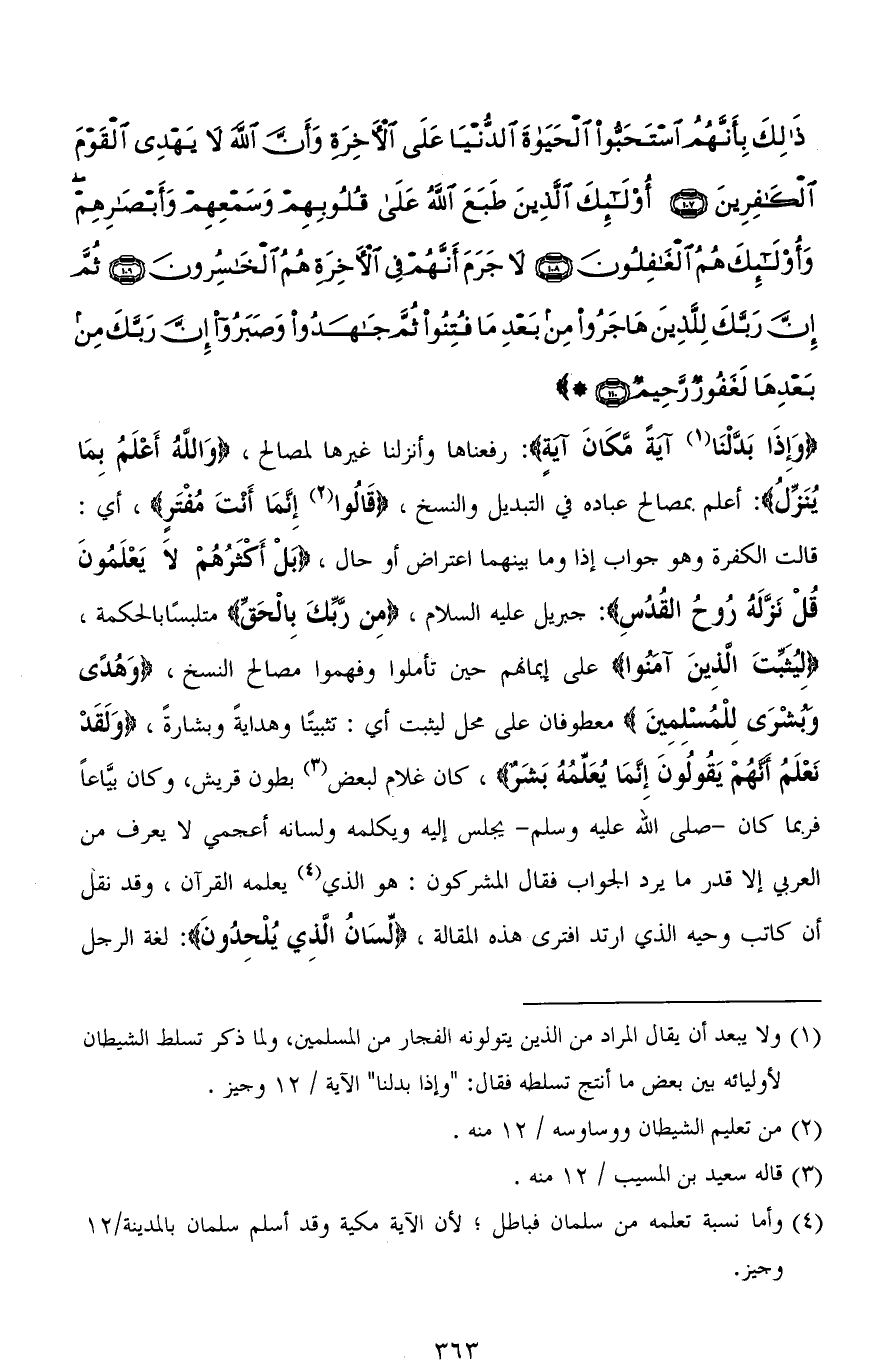 ذَٰلِكَ بِأَنَّهُمُ ٱسْتَحَبُّوا۟ ٱلْحَيَوٰةَ ٱلدُّنْيَا عَلَى ٱلْـَٔاخِرَةِ وَأَنَّ ٱللَّهَ لَا يَهْدِى ٱلْقَوْمَ
ٱلْكَـٰفِرِينَ ١٠٧ أُو۟لَـٰٓئِكَ ٱلَّذِينَ طَبَعَ ٱللَّهُ عَلَىٰ قُلُوبِهِمْ وَسَمْعِهِمْ وَأَبْصَـٰرِهِمْ ۖ
وَأُو۟لَـٰٓئِكَ هُمُ ٱلْغَـٰفِلُونَ ١٠٨ لَا جَرَمَ أَنَّهُمْ فِى ٱلْـَٔاخِرَةِ هُمُ ٱلْخَـٰسِرُونَ ١٠٩ ثُمَّ
إِنَّ رَبَّكَ لِلَّذِينَ هَاجَرُوا۟ مِنۢ بَعْدِ مَا فُتِنُوا۟ ثُمَّ جَـٰهَدُوا۟ وَصَبَرُوٓا۟ إِنَّ رَبَّكَ مِنۢ
بَعْدِهَا لَغَفُورٌ رَّحِيمٌ ١١٠ * ﴾
﴿وَإِذَا بَدَّلْنَا(١) آيَةً مَّكَانَ آيَةٍ﴾: رفعناها وأنزلنا غيرها لمصالح ، ﴿وَاللَّهُ أَعْلَمُ بِمَا
يُنَزِّلُ﴾: أعلم بمصالح عباده في التبديل والنسخ ، ﴿قَالُوا(٢) إِنَّمَا أَنْتَ مُفْتَرٍ﴾ ، أي :
قالت الكفرة وهو جواب إذا وما بينهما اعتراض أو حال ، ﴿بَلْ أَكْثَرُهُمْ لاَ يَعْلَمُونَ
قُلْ نَزَّلَهُ رُوحُ القُدُسِ﴾: جبريل عليه السلام ، ﴿مِن رَّبِّكَ بِالْحَقِّ﴾ متلبسًابالحكمة ،
﴿لِيُثَبِّتَ الَّذِينَ آمَنُوا﴾ على إيمانهم حين تأملوا وفهموا مصالح النسخ ، ﴿وَهُدًى
وَبُشْرَى لِلْمُسْلِمِينَ ﴾ معطوفان على محل ليثبت أي : تثبيتًا وهدايةً وبشارةً ، ﴿وَلَقَدْ
نَعْلَمُ أَنَّهُمْ يَقُولُونَ إِنَّمَا يُعَلِّمُهُ بَشَرٌ﴾ ، كان غلام لبعض(٣) بطون قريش، وكان بيَّاعاً
فربما كان –صلى الله عليه وسلم– يجلس إليه ويكلمه ولسانه أعجمي لا يعرف من
العربي إلا قدر ما يرد الجواب فقال المشركون : هو الذي(٤) يعلمه القرآن ، وقد نقل
أن كاتب وحيه الذي ارتد افترى هذه المقالة ، ﴿لِّسَانُ الَّذِي يُلْحِدُونَ﴾: لغة الرجل
(١) ولا يبعد أن يقال المراد من الذين يتولونه الفجار من المسلمين، ولما ذكر تسلط الشيطان
لأوليائه بين بعض ما أنتج تسلطه فقال: "وإذا بدلنا" الآية / ١٢ وجيز .
(٢) من تعليم الشيطان ووساوسه / ١٢ منه .
(٣) قاله سعيد بن المسيب / ١٢ منه .
(٤) وأما نسبة تعلمه من سلمان فباطل ؛ لأن الآية مكية وقد أسلم سلمان بالمدينة/١٢
وجيز.
٣٦٣